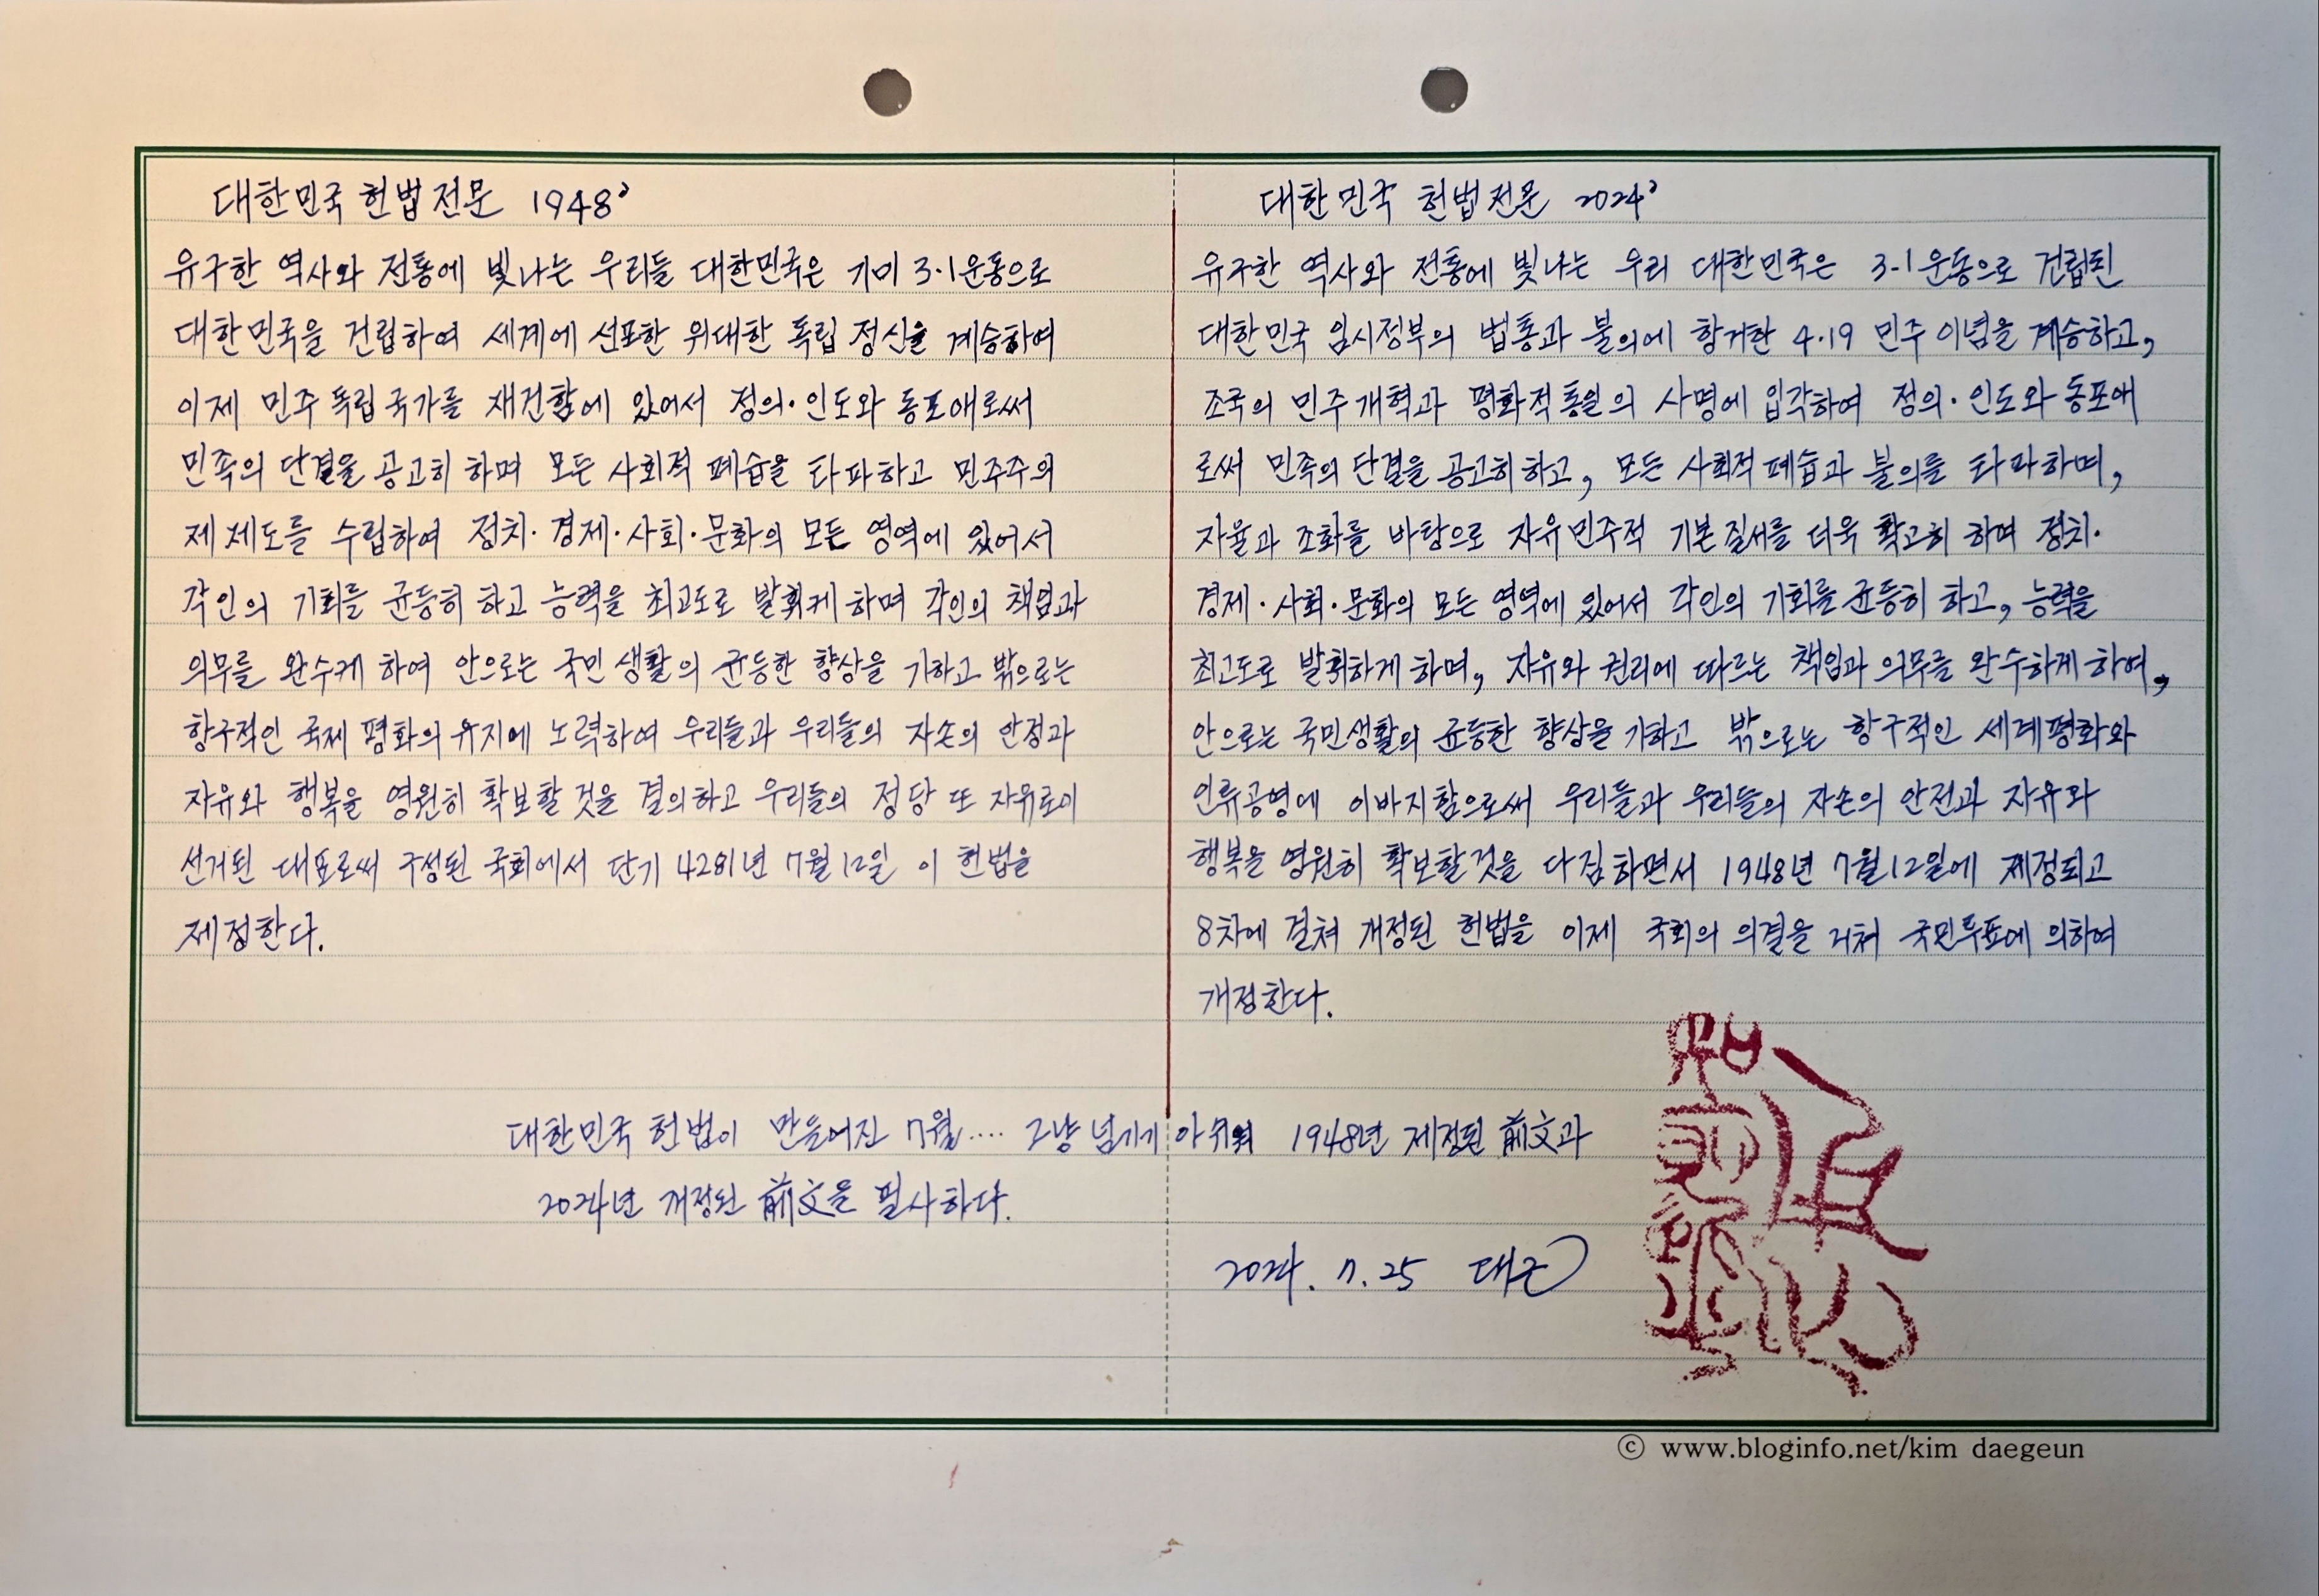 대한민국 헌법전문 1948'
유구한 역사와 전통에 빛나는 우리들 대한민국은 기미 3·1운동으로
대한민국을 건립하여 세계에 선포한 위대한 독립 정신을 계승하여
이제 민주 독립 국가를 재건함에 있어서 정의·인도와 동포애로써
민족의 단결을 공고히 하며 모든 사회적 폐습을 타파하고 민주주의
제 제도를 수립하여 정치·경제·사회·문화의 모든 영역에 있어서
각인의 기회를 균등히 하고 능력을 최고도로 발휘케 하며 각인의 책임과
의무를 완수케 하여 안으로는 국민 생활의 균등한 향상을 기하고 밖으로는
항구적인 국제 평화의 유지에 노력하여 우리들과 우리들의 자손의 안정과
자유와 행복을 영원히 확보할 것을 결의하고 우리들의 정당 또 자유로이
선거된 대표로써 구성된 국회에서 단기 4281년 7월 12일 이 헌법을
제정한다.
대한민국 헌법전문 2024'
유구한 역사와 전통에 빛나는 우리 대한민국은 3·1운동으로 건립된
대한민국 임시정부의 법통과 불의에 항거한 4·19 민주 이념을 계승하고,
조국의 민주개혁과 평화적 통일의 사명에 입각하여 정의·인도와 동포애
로써 민족의 단결을 공고히 하고, 모든 사회적 폐습과 불의를 타파하며,
자율과 조화를 바탕으로 자유민주적 기본질서를 더욱 확고히 하여 정치·
경제·사회·문화의 모든 영역에 있어서 각인의 기회를 균등히 하고, 능력을
최고도로 발휘하게 하며, 자유와 권리에 따르는 책임과 의무를 완수하게 하여,
안으로는 국민생활의 균등한 향상을 기하고 밖으로는 항구적인 세계평화와
인류공영에 이바지함으로써 우리들과 우리들의 자손의 안전과 자유와
행복을 영원히 확보할 것을 다짐하면서 1948년 7월 12일에 제정되고
8차에 걸쳐 개정된 헌법을 이제 국회의 의결을 거쳐 국민투표에 의하여
개정한다.
대한민국 헌법이 만들어진 7월.... 그냥 넘기기 아쉬워 1948년 제정된 前文과
2024년 개정된 前文을 필사하다.
2024. 7. 25 대근
© www.bloginfo.net/kim daegeun